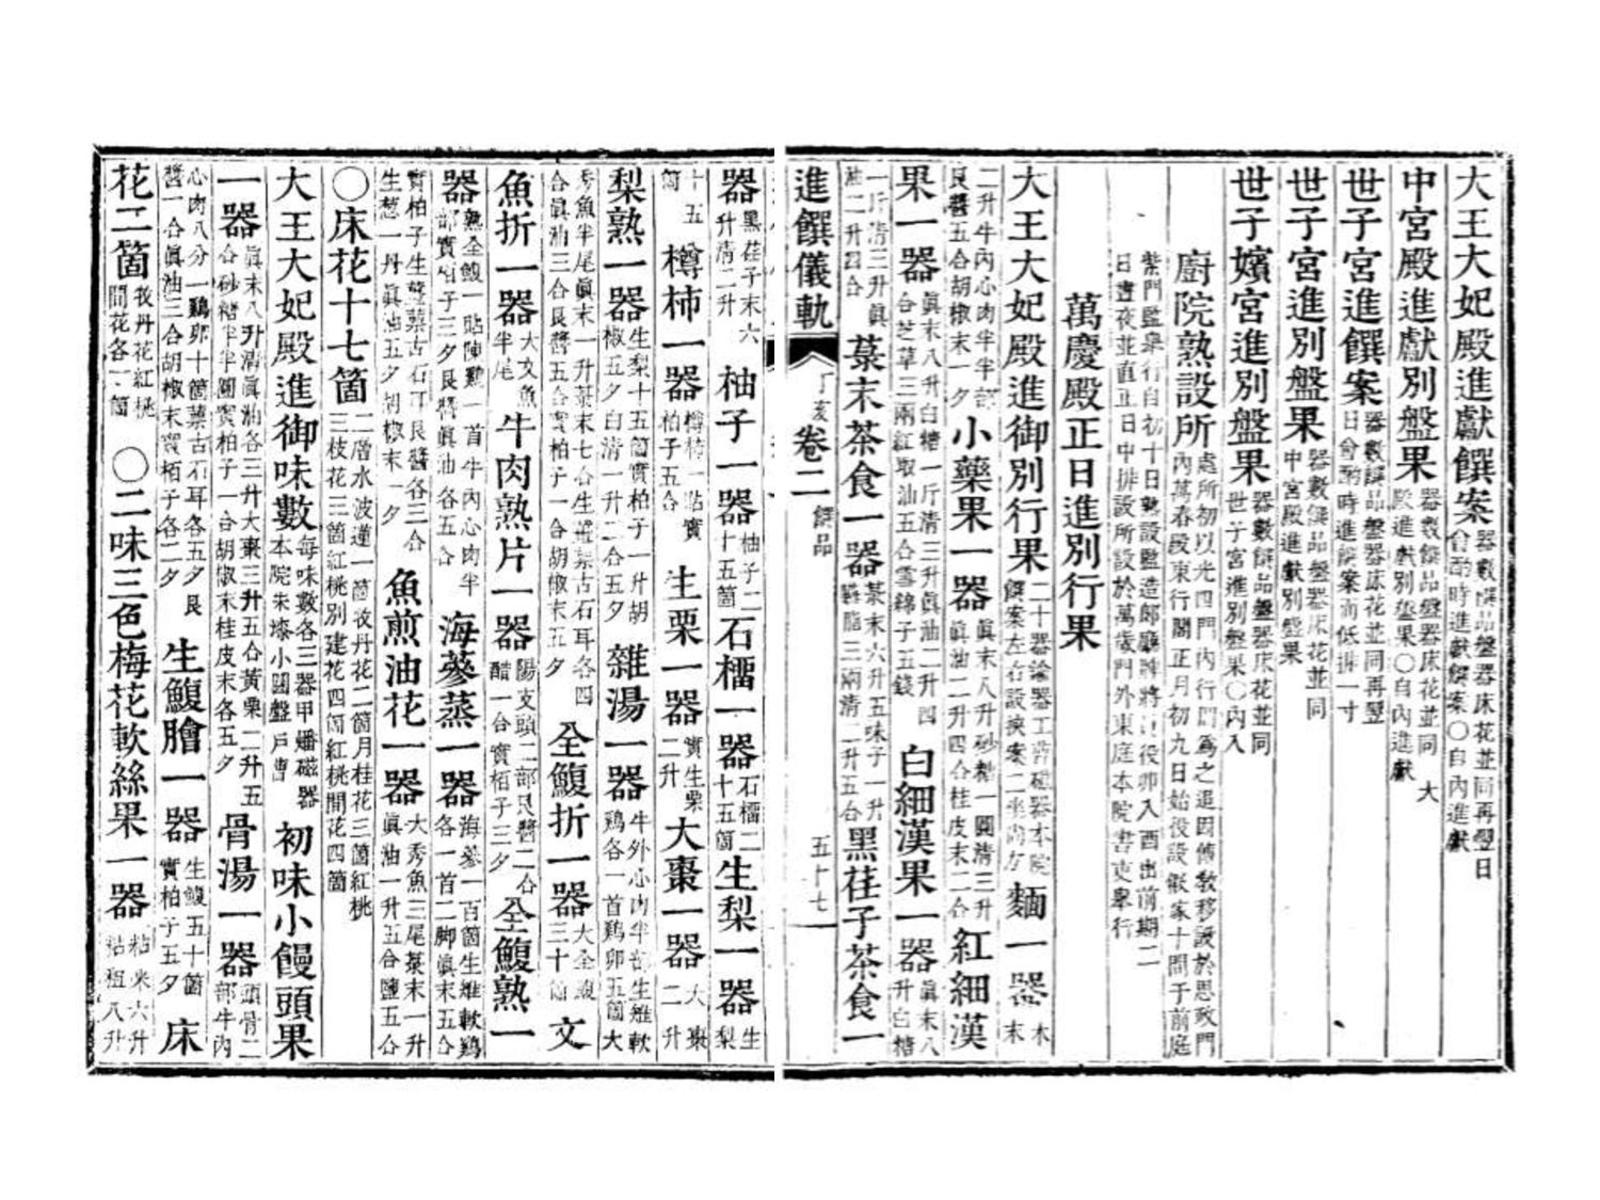 大王大妃殿進獻饌案器數饌品盤器床花並同再翌日會酌時進獻饌案〇自內進獻
中宮殿進獻別盤果器數饌品盤器床花並同大殿進獻別盤果〇自內進獻
世子宮進饌案器數饌品盤器床花並同再翌日會酌時進饌案而低排一寸
世子宮進別盤果器數饌品盤器床花並同中宮殿進獻別盤果
世子嬪宮進別盤果器數饌品盤器床花並同世子宮進別盤果〇內入
廚院熟設所處所初以光四門內行閣爲之退因傳敎移設於思政門內萬春殿東行閣正月初九日始役設假家十間于前庭
紫門監擧行自初十日熟設監造郞廳牌將員役卯入酉出前期二日晝夜並直正日中排設所設於萬歲門外東庭本院書吏擧行
萬慶殿正日進別行果
大王大妃殿進御別行果二十器鍮器工曹磁器本院饌案左右設挾案二坐尙方 麵一器木末
二升牛內心肉半部艮醬五合胡椒末一夕 小藥果一器眞末八升砂糖一圓淸三升眞油二升四合桂皮末二合 紅細漢
果一器眞末八升白糖一斤淸三升眞油二升四合芝草三兩紅取油五合雪綿子五錢 白細漢果一器眞末八升白糖
一斤淸三升眞油二升四合 菉末茶食一器菉末六升五味子一升臙脂三兩淸一升五合 黑荏子茶食一
進饌儀軌 丁亥 卷二 饌品 五十七
器黑荏子末六升淸二升 柚子一器柚子二十五箇 石榴一器石榴二十五箇 生梨一器生梨
十五箇 樽柿一器樽柿一貼實柏子五合 生栗一器實生栗二升 大棗一器大棗二升
梨熟一器生梨十五箇實柏子一升胡椒五夕白淸一升二合五夕 雜湯一器牛外心肉半部生雉軟鷄各一首鷄卵五箇大
秀魚半尾眞末一升菉末七合生薑蔈古石耳各四合眞油三合艮醬五合實柏子一合胡椒末五夕 全鰒折一器大全鰒三十箇 文
魚折一器大文魚半尾 牛肉熟片一器陽支頭二部艮醬二合醋一合實栢子三夕 全鰒熟一
器熟全鰒一貼陳鷄一首牛內心肉半部實栢子三夕艮醬眞油各五合 海蔘蒸一器海蔘一百箇生雉軟鷄各一首二脚眞末五合
實柏子生薑蔈古石耳艮醬各三合生葱一丹眞油五夕胡椒末一夕 魚煎油花一器大秀魚三尾菉末一升眞油一升五合鹽五合
〇床花十七箇二層水波蓮一箇牧丹花二箇月桂花三箇紅桃三枝花三箇紅桃別建花四箇紅桃間花四箇
大王大妃殿進御味數每味數各三器甲燔磁器本院朱漆小圓盤戶曹 初味小饅頭果
一器眞末八升淸眞油各三升大棗三升五合黃栗二升五合砂糖半半圓實柏子一合胡椒末桂皮末各五夕 骨湯一器頭骨二部牛內
心肉八分一鷄卵十箇蔈古石耳各五夕艮醬一合眞油三合胡椒末實栢子各二夕 生鰒膾一器生鰒五十箇實柏子五夕 床
花二箇牧丹花紅桃間花各一箇 〇二味三色梅花軟絲果一器粘米六升粘租八升